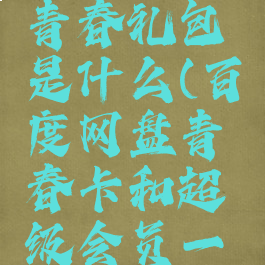 青春礼包
是什么(百
度网盘青
春卡和超
级会员一